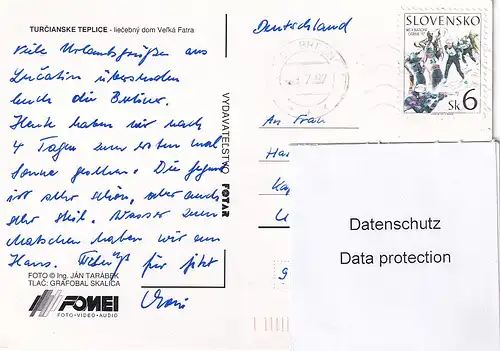 TURČIANSKE TEPLICE - liečebný dom Veľká Fatra
Viele Urlaubsgrüße aus
übersenden
Euch die
Heute haben wir nach
4 Tagen zum ersten mal
Sonne gesehen. Die Gegend
ist sehr schön, aber auch
sehr steil. Wasser zum
Matschen haben wir am
Haus. für jetzt
FOTO © Ing. JÁN TARÁBEK
TLAČ: GRAFOBAL SKALICA
FOMEI
FOTO-VIDEO-AUDIO
VYDAVATEĽSTVO FOTAR
Deutschland
SLOVENSKO
Sk 6
An Frau
Datenschutz
Data protection